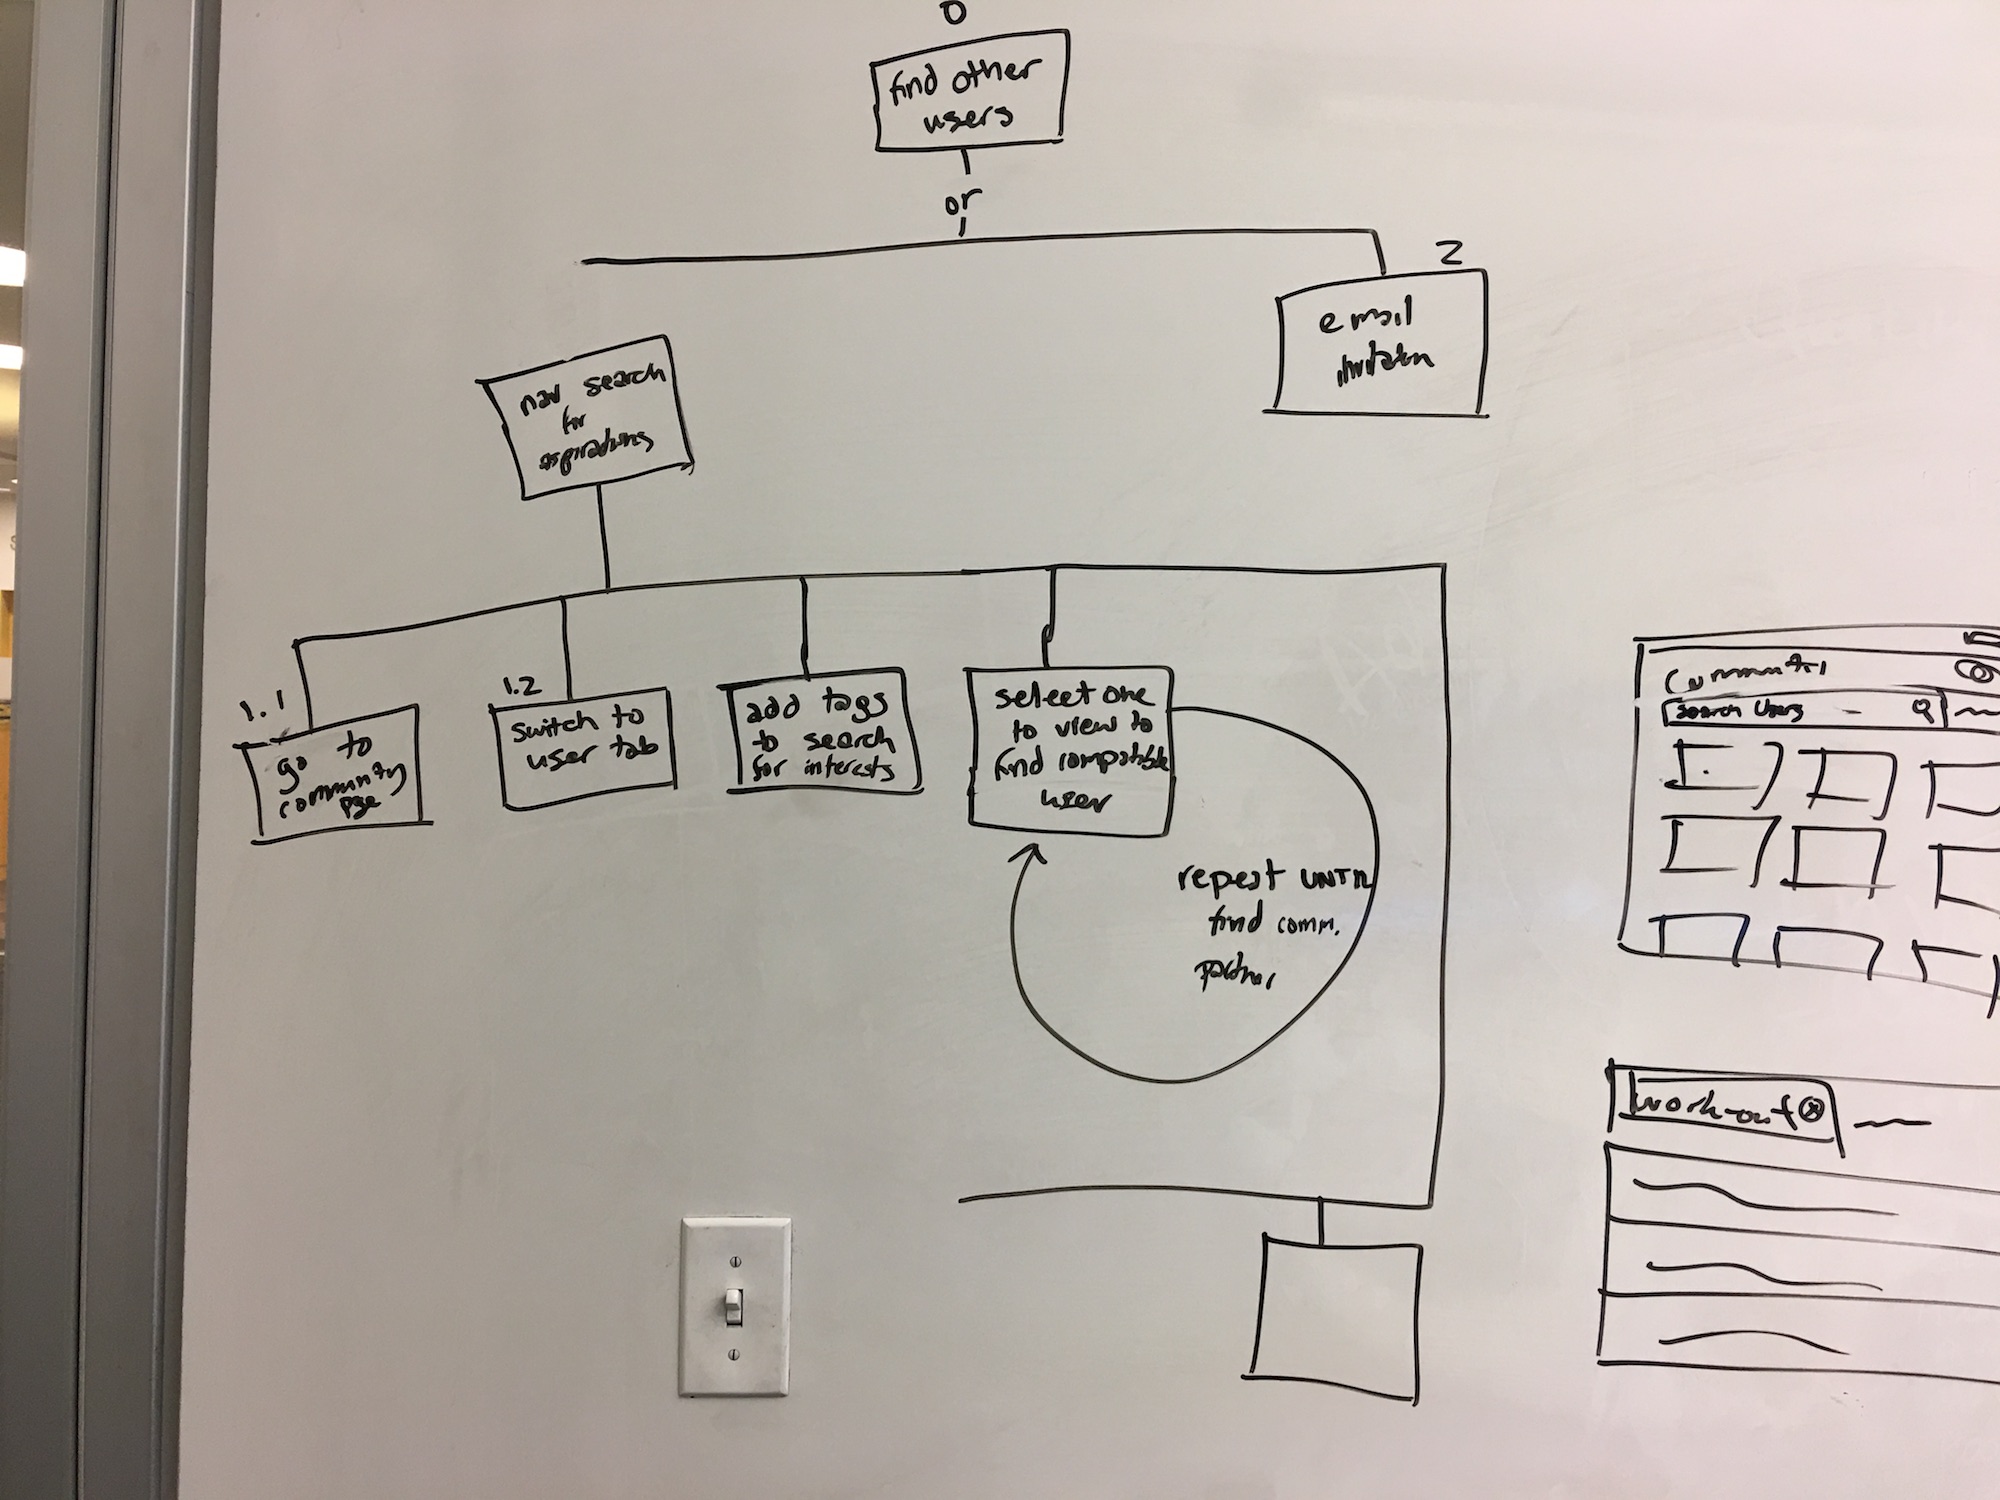 0
find other
users
or
2
email
invitation
nav search
for
aspirations
1.1
go to
community
page
1.2
switch to
user tab
add tags
to search
for interests
select one
to view to
find compatible
user
repeat UNTIL
find comm.
partner
Community
Search Users
work-out